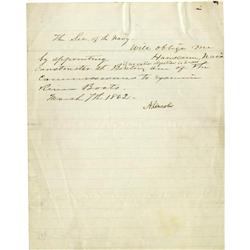 The Sec. of the Navy
Will oblige me
by appointing Hanscom, Naval
Constructor at Boston, one of the
Commissioners to examine
Boats.
March 7th. 1862.
A. Lincoln